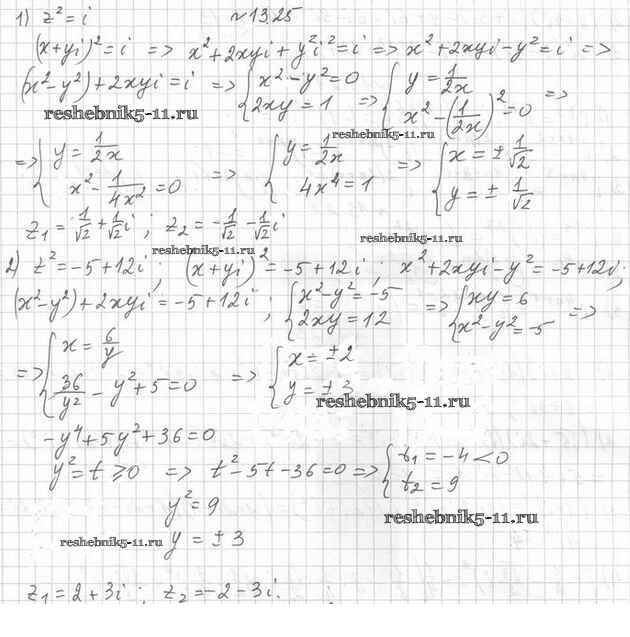 1) z² = i № 13.25
(x+yi)² = i => x² + 2xyi + y²i² = i => x² + 2xyi - y² = i =>
(x² - y²) + 2xyi = i => { x² - y² = 0 ; 2xy = 1 => { y = 1/2x ; x² - (1/2x)² = 0 =>
reshebnik5-11.ru
reshebnik5-11.ru
=> { y = 1/2x ; x² - 1/4x² = 0 => { y = 1/2x ; 4x⁴ = 1 => { x = ± 1/√2 ; y = ± 1/√2
z₁ = 1/√2 + 1/√2 i ; z₂ = - 1/√2 - 1/√2 i
reshebnik5-11.ru
reshebnik5-11.ru
2) z² = -5 + 12i ; (x+yi)² = -5 + 12i ; x² + 2xyi - y² = -5 + 12i ;
(x² - y²) + 2xyi = -5 + 12i ; { x² - y² = -5 ; 2xy = 12 => { xy = 6 ; x² - y² = -5 =>
=> { x = 6/y ; 36/y² - y² + 5 = 0 => { x = ± 2 ; y = ± 3
reshebnik5-11.ru
- y⁴ + 5y² + 36 = 0
y² = t ⩾ 0 => t² - 5t - 36 = 0 => { t₁ = -4 < 0 ; t₂ = 9
y² = 9
reshebnik5-11.ru
y = ± 3
reshebnik5-11.ru
z₁ = 2 + 3i ; z₂ = -2 - 3i.